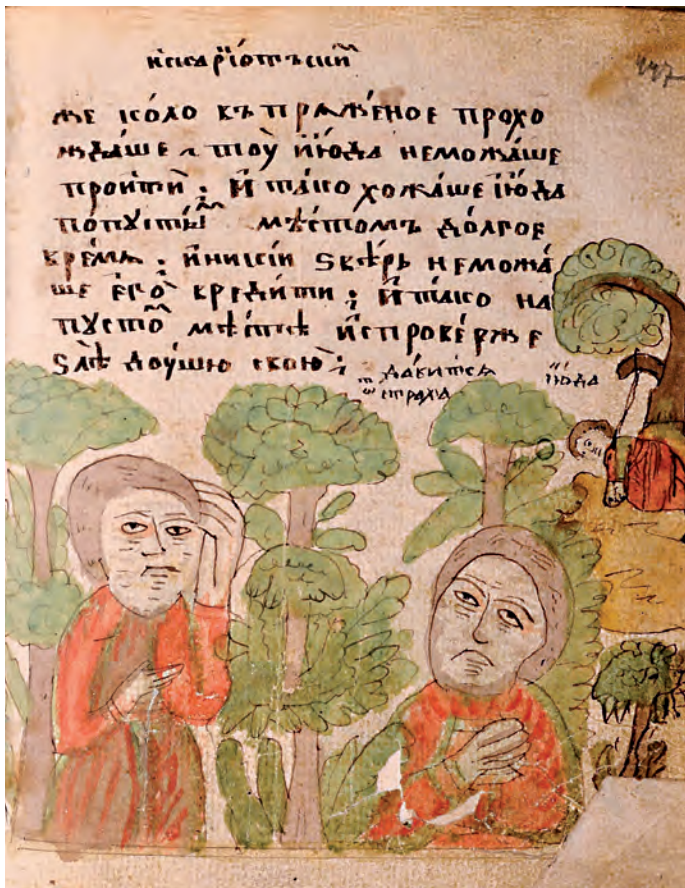 искарїѡтъскїй
же коло въпряженое прохо
ждаше ⁘ тоу їюда неможаше
пройтй : и тако хождаше їюда
попустымъ мѣстомъ долгое
время : иникїй ѕвѣрь неможа
ше его вредити : и тако на
пустомъ мѣстѣ испроверже
ѕлѣ доушю свою :
давится їюда
страха